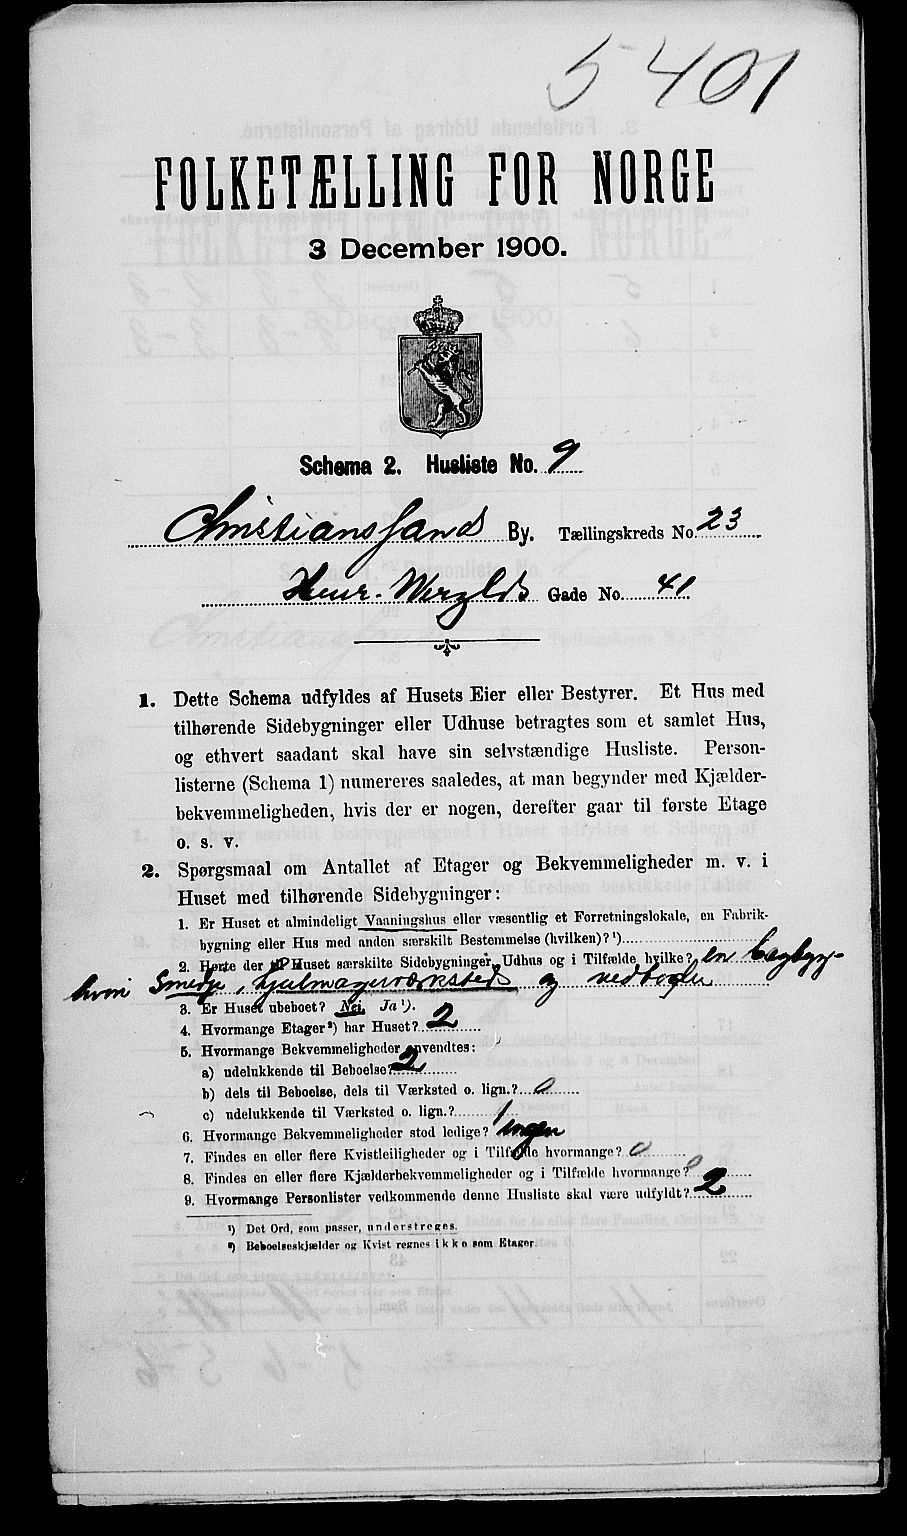 5401
FOLKETÆLLING FOR NORGE
3 December 1900.
Schema 2. Husliste No. 9
Christianssand By. Tællingskreds No. 23
Henr. Wergelds Gade No. 41
1. Dette Schema udfyldes af Husets Eier eller Bestyrer. Et Hus med
tilhørende Sidebygninger eller Udhuse betragtes som et samlet Hus,
og ethvert saadant skal have sin selvstændige Husliste. Person-
listerne (Schema 1) numereres saaledes, at man begynder med Kjælder-
bekvemmeligheden, hvis der er nogen, derefter gaar til første Etage
o. s. v.
2. Spørgsmaal om Antallet af Etager og Bekvemmeligheder m. v. i
Huset med tilhørende Sidebygninger:
1. Er Huset et almindeligt Vaaningshus eller væsentlig et Forretningslokale, en Fabrik-
bygning eller Hus med anden særskilt Bestemmelse (hvilken)? ¹)
2. Hørte der til Huset særskilte Sidebygninger, Udhus og i Tilfælde hvilke? en bagbyg-
hvori Smedje, hjulmagerværksted og vedboder
3. Er Huset ubeboet? Nei. Ja ¹).
4. Hvormange Etager ²) har Huset? 2
5. Hvormange Bekvemmeligheder anvendtes:
a) udelukkende til Beboelse? 2
b) dels til Beboelse, dels til Værksted o. lign.? 0
c) udelukkende til Værksted o. lign.? 1
6. Hvormange Bekvemmeligheder stod ledige? ingen
7. Findes en eller flere Kvistleiligheder og i Tilfælde hvormange? 0
8. Findes en eller flere Kjælderbekvemmeligheder og i Tilfælde hvormange? 0
9. Hvormange Personlister vedkommende denne Husliste skal være udfyldt? 2
¹) Det Ord, som passer, understreges.
²) Beboelseskjælder og Kvist regnes ikke som Etager.